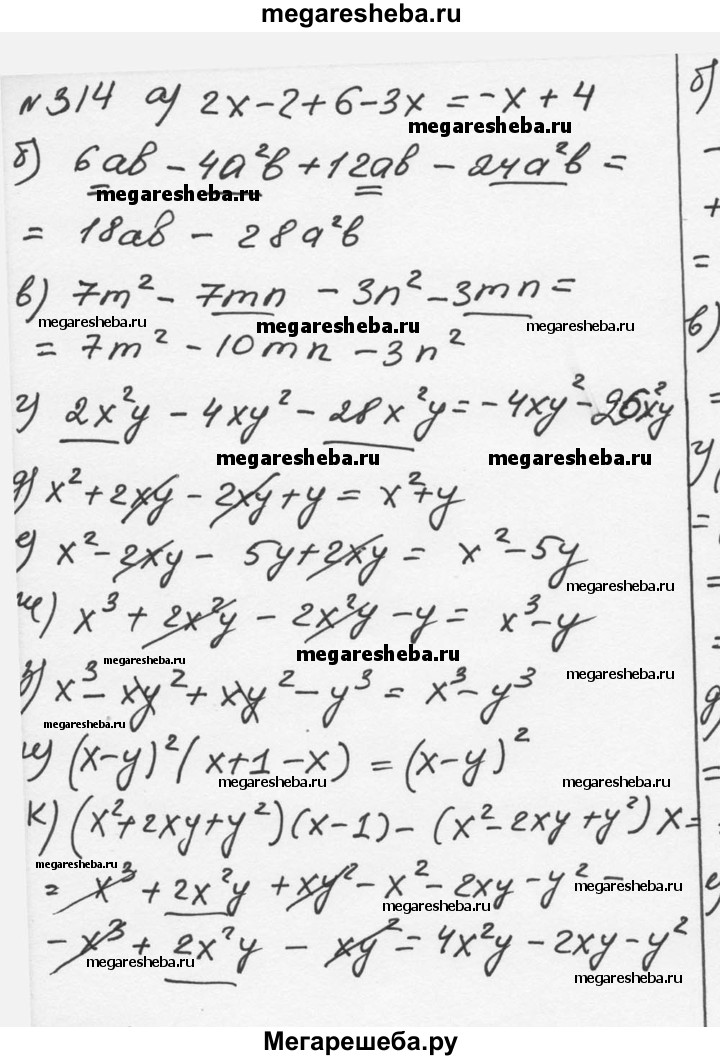 megaresheba.ru
№314 а) 2x-2+6-3x = -x+4
megaresheba.ru
б) 6ab - 4a²b + 12ab - 24a²b =
megaresheba.ru
= 18ab - 28a²b
в) 7m² - 7mn - 3n² - 3mn =
megaresheba.ru megaresheba.ru megaresheba.ru
= 7m² - 10mn - 3n²
г) 2x²y - 4xy² - 28x²y = -4xy² - 26x²y
megaresheba.ru megaresheba.ru
д) x² + 2xy - 2xy + y = x² + y
е) x² - 2xy - 5y + 2xy = x² - 5y
megaresheba.ru
ж) x³ + 2x²y - 2x²y - y = x³ - y
megaresheba.ru megaresheba.ru megaresheba.ru
з) x³ - xy² + xy² - y³ = x³ - y³
megaresheba.ru
и) (x-y)²(x+1-x) = (x-y)²
megaresheba.ru megaresheba.ru
к) (x²+2xy+y²)(x-1) - (x²-2xy+y²)x =
megaresheba.ru
= x³ + 2x²y + xy² - x² - 2xy - y² -
megaresheba.ru megaresheba.ru
- x³ + 2x²y - xy² = 4x²y - 2xy - y²
megaresheba.ru megaresheba.ru
Мегарешеба.ру
б)
-
+
=
в)
=
=
=
=